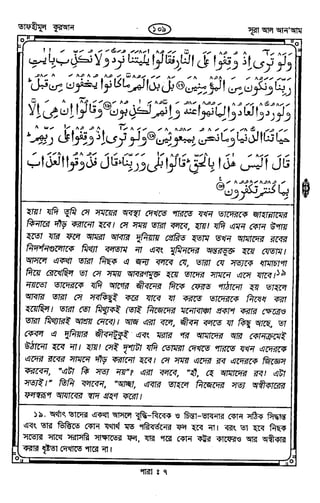 তাফহীমুল কুরআন
১০৯
সূরা আল আন'আম
وَلَوْ تَرٰٓى اِذْ وُقِفُوْا عَلَى النَّارِ فَقَالُوْا يٰلَيْتَنَا نُرَدُّ وَلَا نُكَذِّبَ بِاٰيٰتِ
رَبِّنَا وَنَكُوْنَ مِنَ الْمُؤْمِنِيْنَ ﴿٢٧﴾ بَلْ بَدَا لَهُمْ مَّا كَانُوْا يُخْفُوْنَ مِنْ قَبْلُ ؕ
وَلَوْ رُدُّوْا لَعَادُوْا لِمَا نُهُوْا عَنْهُ وَاِنَّهُمْ لَكٰذِبُوْنَ ﴿٢٨﴾ وَقَالُوْٓا اِنْ هِىَ اِلَّا
حَيَاتُنَا الدُّنْيَا وَمَا نَحْنُ بِمَبْعُوْثِيْنَ ﴿٢٩﴾ وَلَوْ تَرٰٓى اِذْ وُقِفُوْا عَلٰى رَبِّهِمْ ؕ
قَالَ اَلَيْسَ هٰذَا بِالْحَقِّ ؕ قَالُوْا بَلٰى وَرَبِّنَا ؕ قَالَ فَذُوْقُوا الْعَذَابَ
بِمَا كُنْتُمْ تَكْفُرُوْنَ ﴿٣٠﴾
হায়! যদি তুমি সে সময়ের অবস্থা দেখতে পারতে যখন তাদেরকে জাহান্নামের
কিনারে দাঁড় করানো হবে। সে সময় তারা বলবে, হায়! যদি এমন কোন উপায়
হতো যার ফলে আমরা আবার দুনিয়ায় প্রেরিত হতাম তখন আমাদের রবের
নিদর্শনগুলোকে মিথ্যা বলতাম না এবং মুমিনদের অন্তরভুক্ত হয়ে যেতাম।
আসলে একথা তারা নিছক এ জন্য বলবে যে, তারা যে সত্যকে ধামাচাপা
দিয়ে রেখেছিল তা সে সময় আবরণমুক্ত হয়ে তাদের সামনে এসে যাবে।১৯
নয়তো তাদেরকে যদি আগের জীবনের দিকে ফেরত পাঠানো হয় তাহলে
আবার তারা সে সবকিছুই করে যাবে যা করতে তাদেরকে নিষেধ করা
হয়েছিল। তারা তো মিথ্যুকই (তাই নিজেদের মনোবাঞ্ছা প্রকাশ করার ক্ষেত্রেও
তারা মিথ্যারই আশ্রয় নেবে)। আজ এরা বলে, জীবন বলতে যা কিছু আছে, তা
কেবল এ দুনিয়ার জীবনটুকুই এবং মরার পর আমাদের আর কোনক্রমেই
উঠানো হবে না। হায়! সেই দৃশ্যটা যদি তোমরা দেখতে পারতে যখন এদেরকে
এদের রবের সামনে দাঁড় করানো হবে। সে সময় এদের রব এদেরকে জিজ্ঞেস
করবেন, "এটা কি সত্য নয়"? এরা বলবে, "হাঁ, হে আমাদের রব! এটা
সত্যই।" তিনি বলবেন, "আচ্ছা, এবার তাহলে নিজেদের সত্য অস্বীকারের
ফলস্বরূপ আযাবের স্বাদ গ্রহণ করো।"
১৯. অর্থাৎ তাদের একথা আসলে বুদ্ধি-বিবেক ও চিন্তা-ভাবনার কোন সঠিক সিদ্ধান্ত
এবং তার ভিত্তিতে কোন যথার্থ মত পরিবর্তনের ফল হবে না। বরং তা হবে নিছক
সত্যের সাথে সরাসরি সাক্ষাতের ফল, যার পরে কোন কট্টর কাফেরও আর অস্বীকার
করার ধৃষ্টতা দেখাতে পারে না।
পারা : ৭